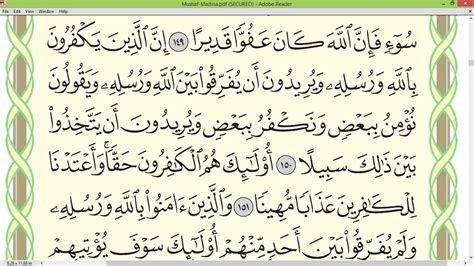 Mushaf-Madina.pdf (SECURED) - Adobe Reader
سُوٓءٖ فَإِنَّ ٱللَّهَ كَانَ عَفُوّٗا قَدِيرًا ١٤٩ إِنَّ ٱلَّذِينَ يَكۡفُرُونَ
بِٱللَّهِ وَرُسُلِهِۦ وَيُرِيدُونَ أَن يُفَرِّقُواْ بَيۡنَ ٱللَّهِ وَرُسُلِهِۦ وَيَقُولُونَ
نُؤۡمِنُ بِبَعۡضٖ وَنَكۡفُرُ بِبَعۡضٖ وَيُرِيدُونَ أَن يَتَّخِذُواْ
بَيۡنَ ذَٰلِكَ سَبِيلًا ١٥٠ أُوْلَٰٓئِكَ هُمُ ٱلۡكَٰفِرُونَ حَقّٗاۚ وَأَعۡتَدۡنَا
لِلۡكَٰفِرِينَ عَذَابٗا مُّهِينٗا ١٥١ وَٱلَّذِينَ ءَامَنُواْ بِٱللَّهِ وَرُسُلِهِۦ
وَلَمۡ يُفَرِّقُواْ بَيۡنَ أَحَدٖ مِّنۡهُمۡ أُوْلَٰٓئِكَ سَوۡفَ يُؤۡتِيهِمۡ
8.26 x 11.69 in